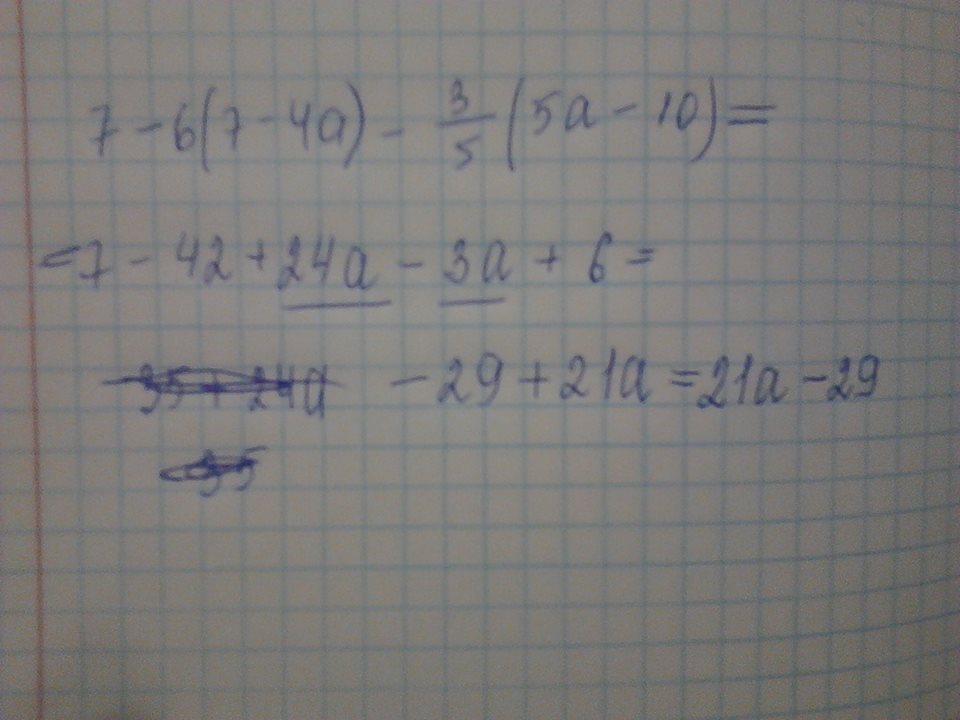 7 - 6(7 - 4a) - 3/5 (5a - 10) =
= 7 - 42 + 24a - 3a + 6 =
- 29 + 21a = 21a - 29